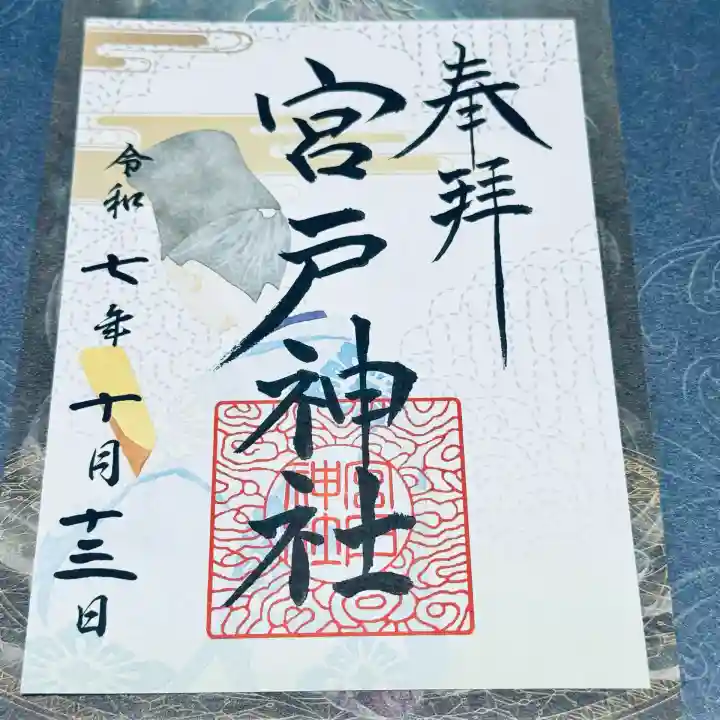 奉拝
宮戸神社
宮戸神社
令和七年十月十三日